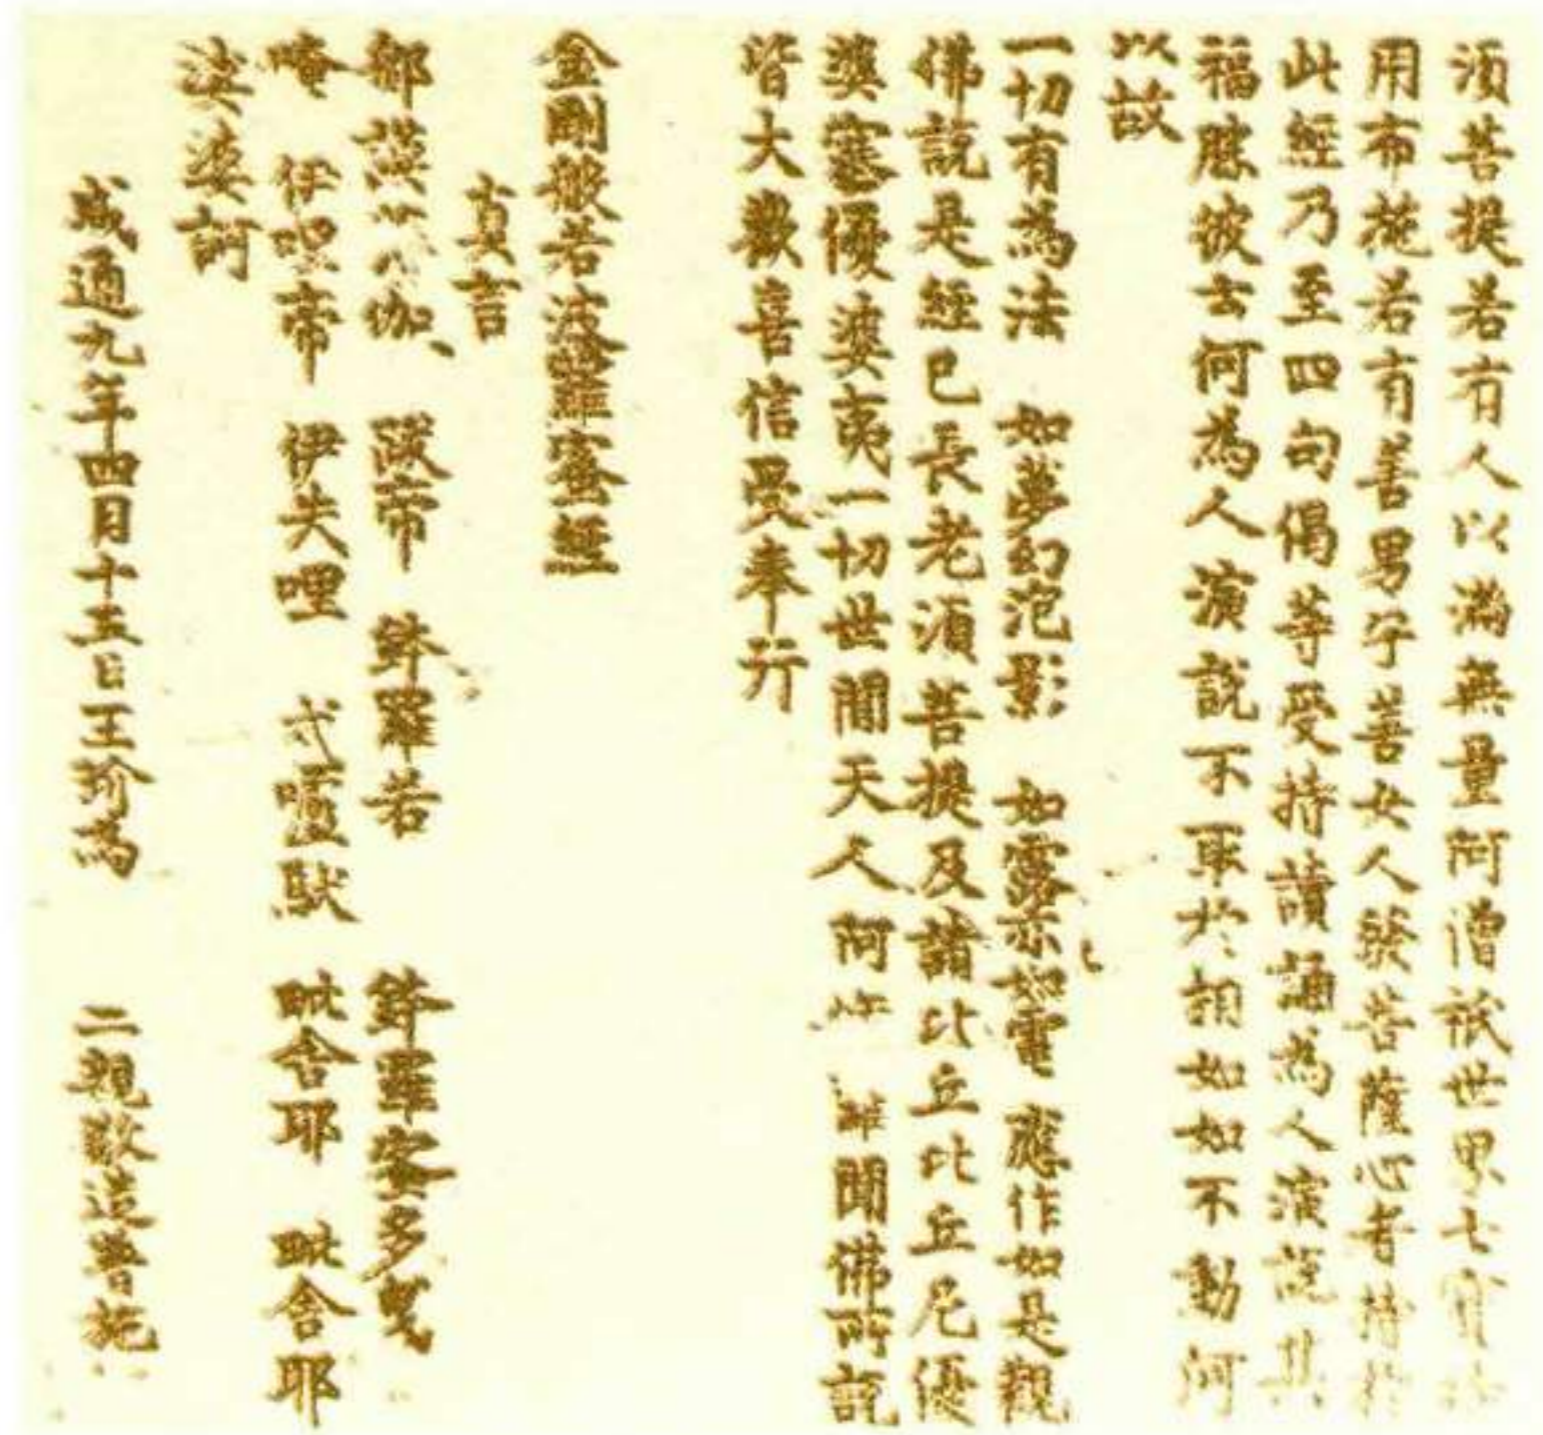 須菩提若有人以滿無量阿僧祇世界七寶持
用布施若有善男子善女人發菩薩心者持於
此經乃至四句偈等受持讀誦為人演說其
福勝彼云何為人演說不取於相如如不動何
以故
一切有為法　如夢幻泡影　如露亦如電　應作如是觀
佛說是經已長老須菩提及諸比丘比丘尼優
婆塞優婆夷一切世間天人阿修羅聞佛所說
皆大歡喜信受奉行
金剛般若波羅蜜經
真言
那謨　伽　跋帝　鉢羅若　鉢羅蜜多曳
唵　伊哩帝　伊失哩　戍嚧馱　毗舍耶　毗舍耶
莎婆訶
咸通九年四月十五日王玠為　二親敬造普施